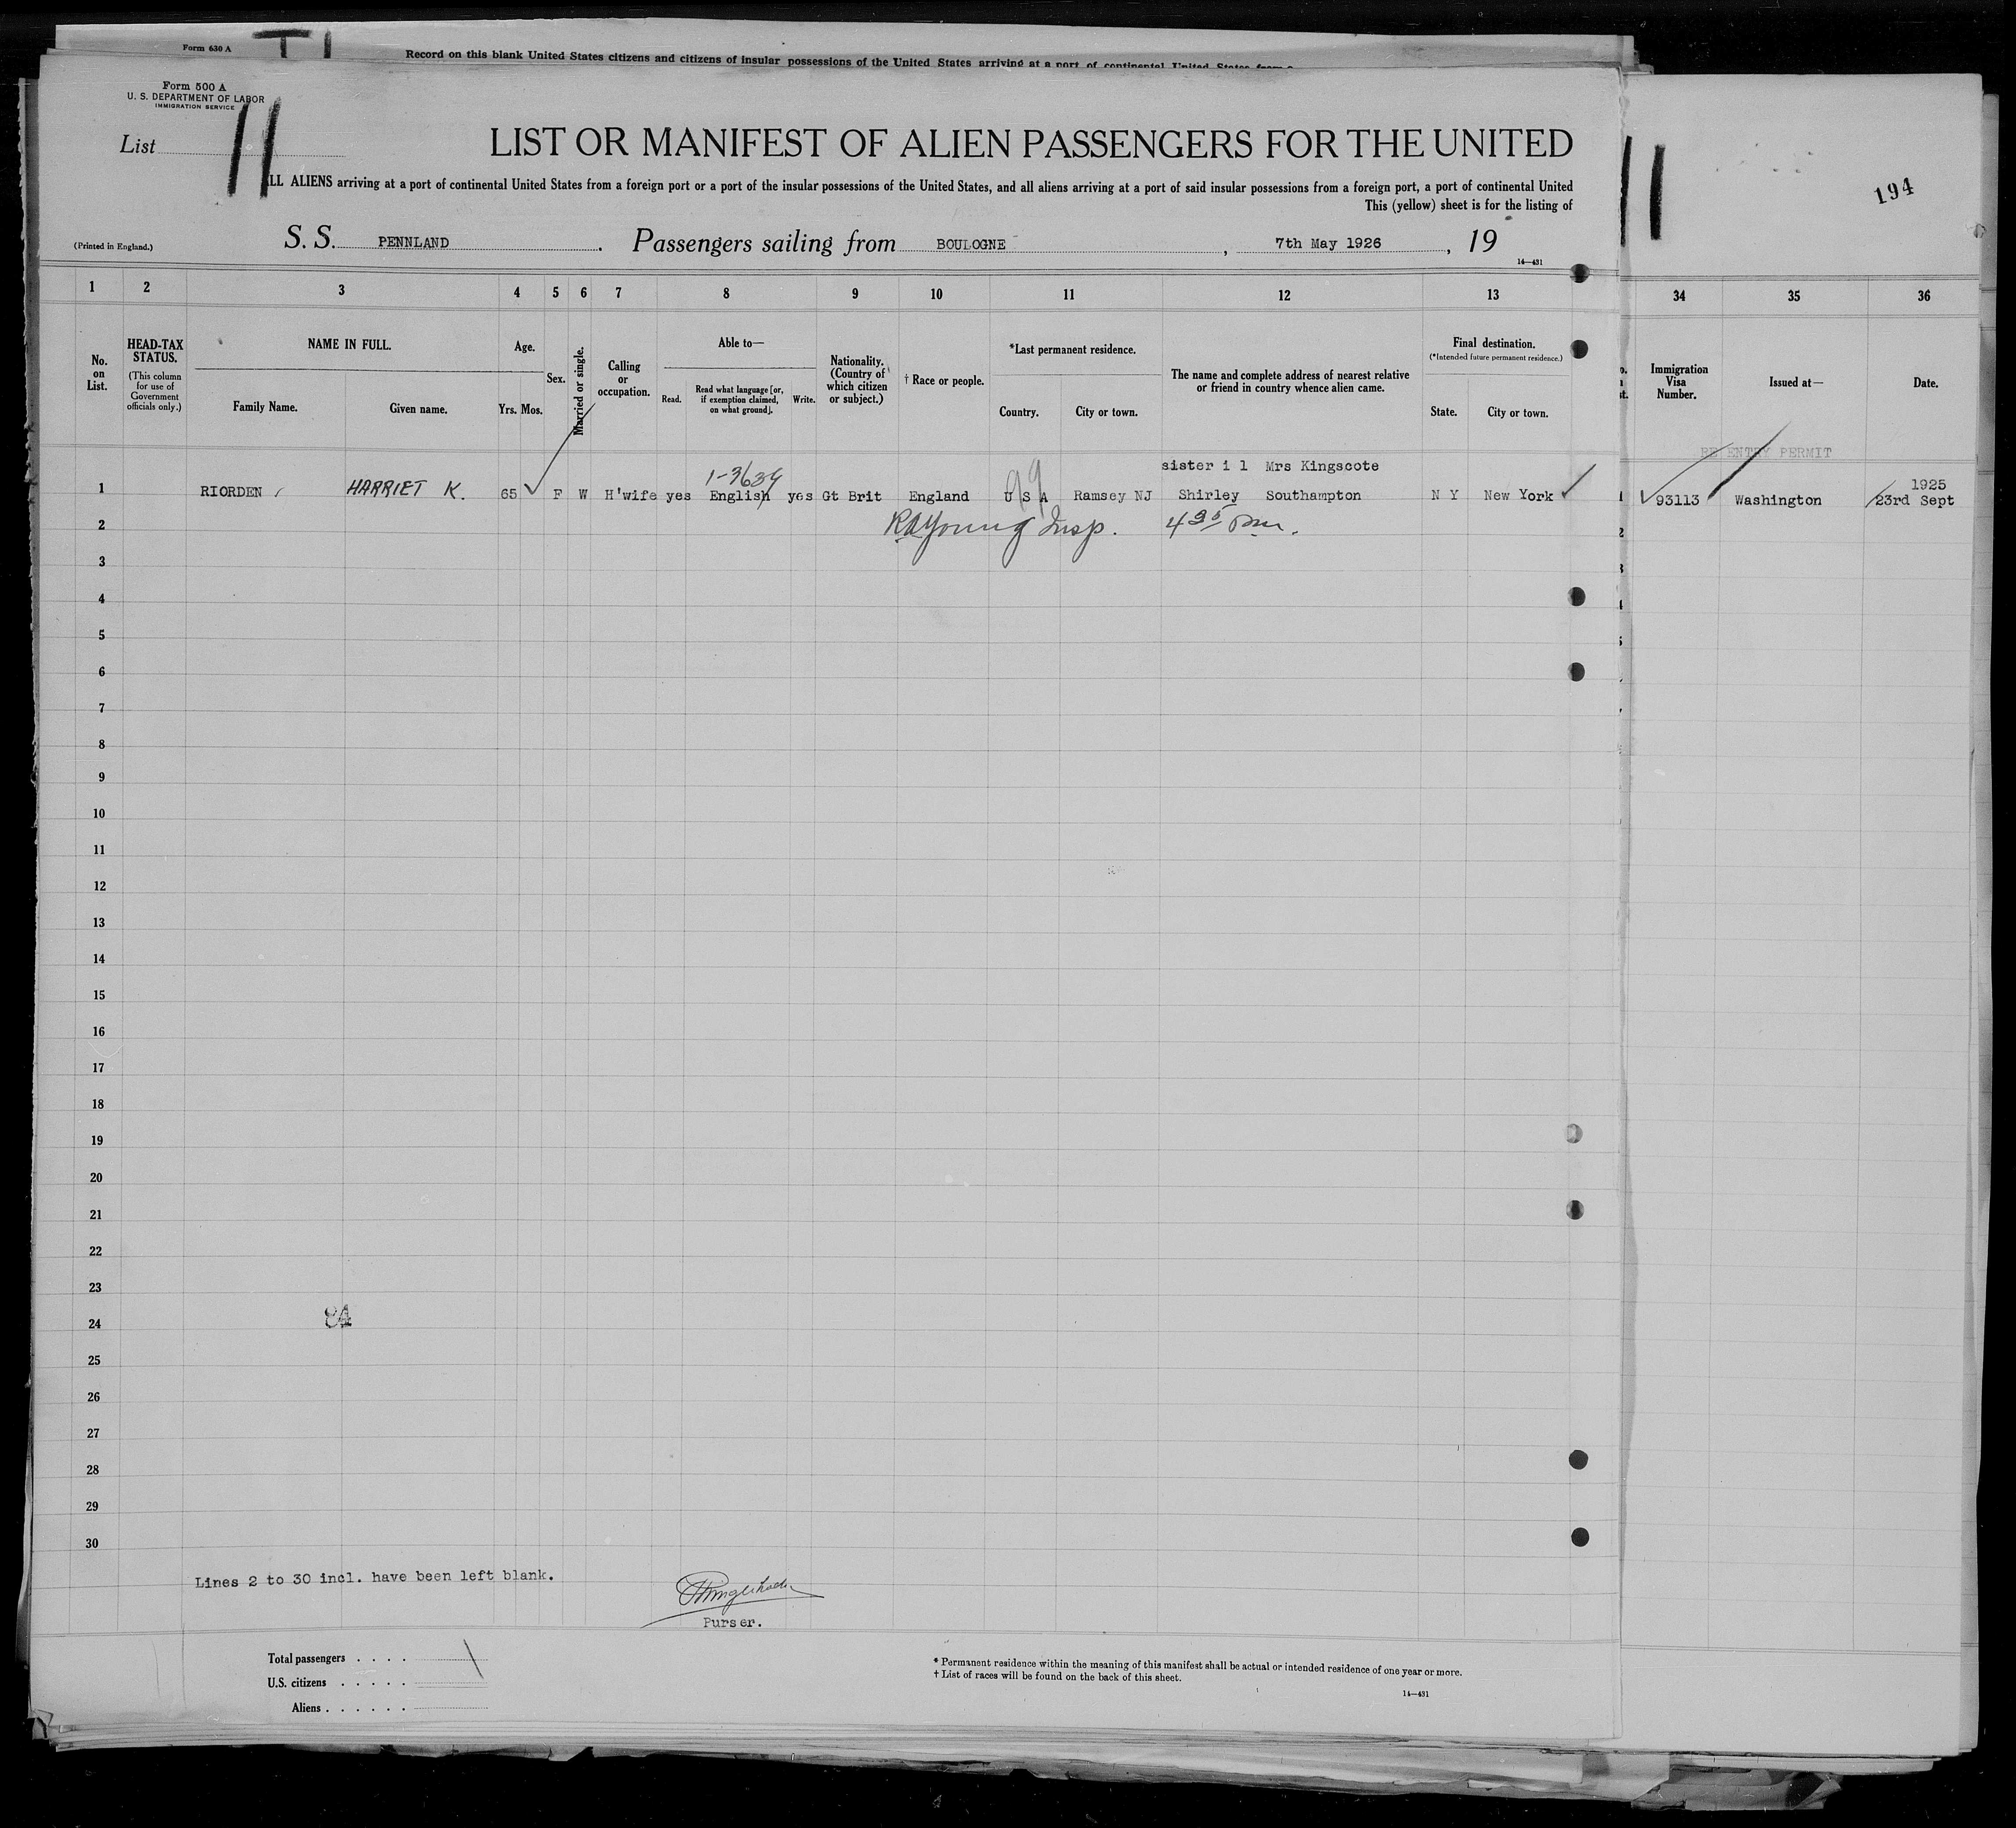 Form 630 A
Record on this blank United States citizens and citizens of insular possessions of the United States arriving at a port of continental United States from a
Form 500 A
U. S. DEPARTMENT OF LABOR
IMMIGRATION SERVICE
List 11
LIST OR MANIFEST OF ALIEN PASSENGERS FOR THE UNITED
LL ALIENS arriving at a port of continental United States from a foreign port or a port of the insular possessions of the United States, and all aliens arriving at a port of said insular possessions from a foreign port, a port of continental United
This (yellow) sheet is for the listing of
194
(Printed in England.)
S. S. PENNLAND . Passengers sailing from BOULOGNE , 7th May 1926 , 19
14—431
1 2 3 4 5 6 7 8 9 10 11 12 13 34 35 36
No. on List.
HEAD-TAX STATUS.
(This column for use of Government officials only.)
NAME IN FULL.
Family Name. Given name.
Age.
Yrs. Mos.
Sex.
Married or single.
Calling or occupation.
Able to—
Read. Read what language [or, if exemption claimed, on what ground]. Write.
Nationality. (Country of which citizen or subject.)
† Race or people.
*Last permanent residence.
Country. City or town.
The name and complete address of nearest relative or friend in country whence alien came.
Final destination.
(*Intended future permanent residence.)
State. City or town.
Immigration Visa Number.
Issued at—
Date.
RE ENTRY PERMIT
1-3634
99
sister i l Mrs Kingscote
1925
1 RIORDEN HARRIET K. 65 F W H'wife yes English yes Gt Brit England U S A Ramsey NJ Shirley Southampton N Y New York 93113 Washington 23rd Sept
2 RA Young Insp. 4 35 pm.
3
4
5
6
7
8
9
10
11
12
13
14
15
16
17
18
19
20
21
22
23
24
84
25
26
27
28
29
30
Lines 2 to 30 incl. have been left blank.
Purser.
Total passengers . . . . 1
U.S. citizens . . . . .
Aliens . . . . . .
* Permanent residence within the meaning of this manifest shall be actual or intended residence of one year or more.
† List of races will be found on the back of this sheet.
14—431